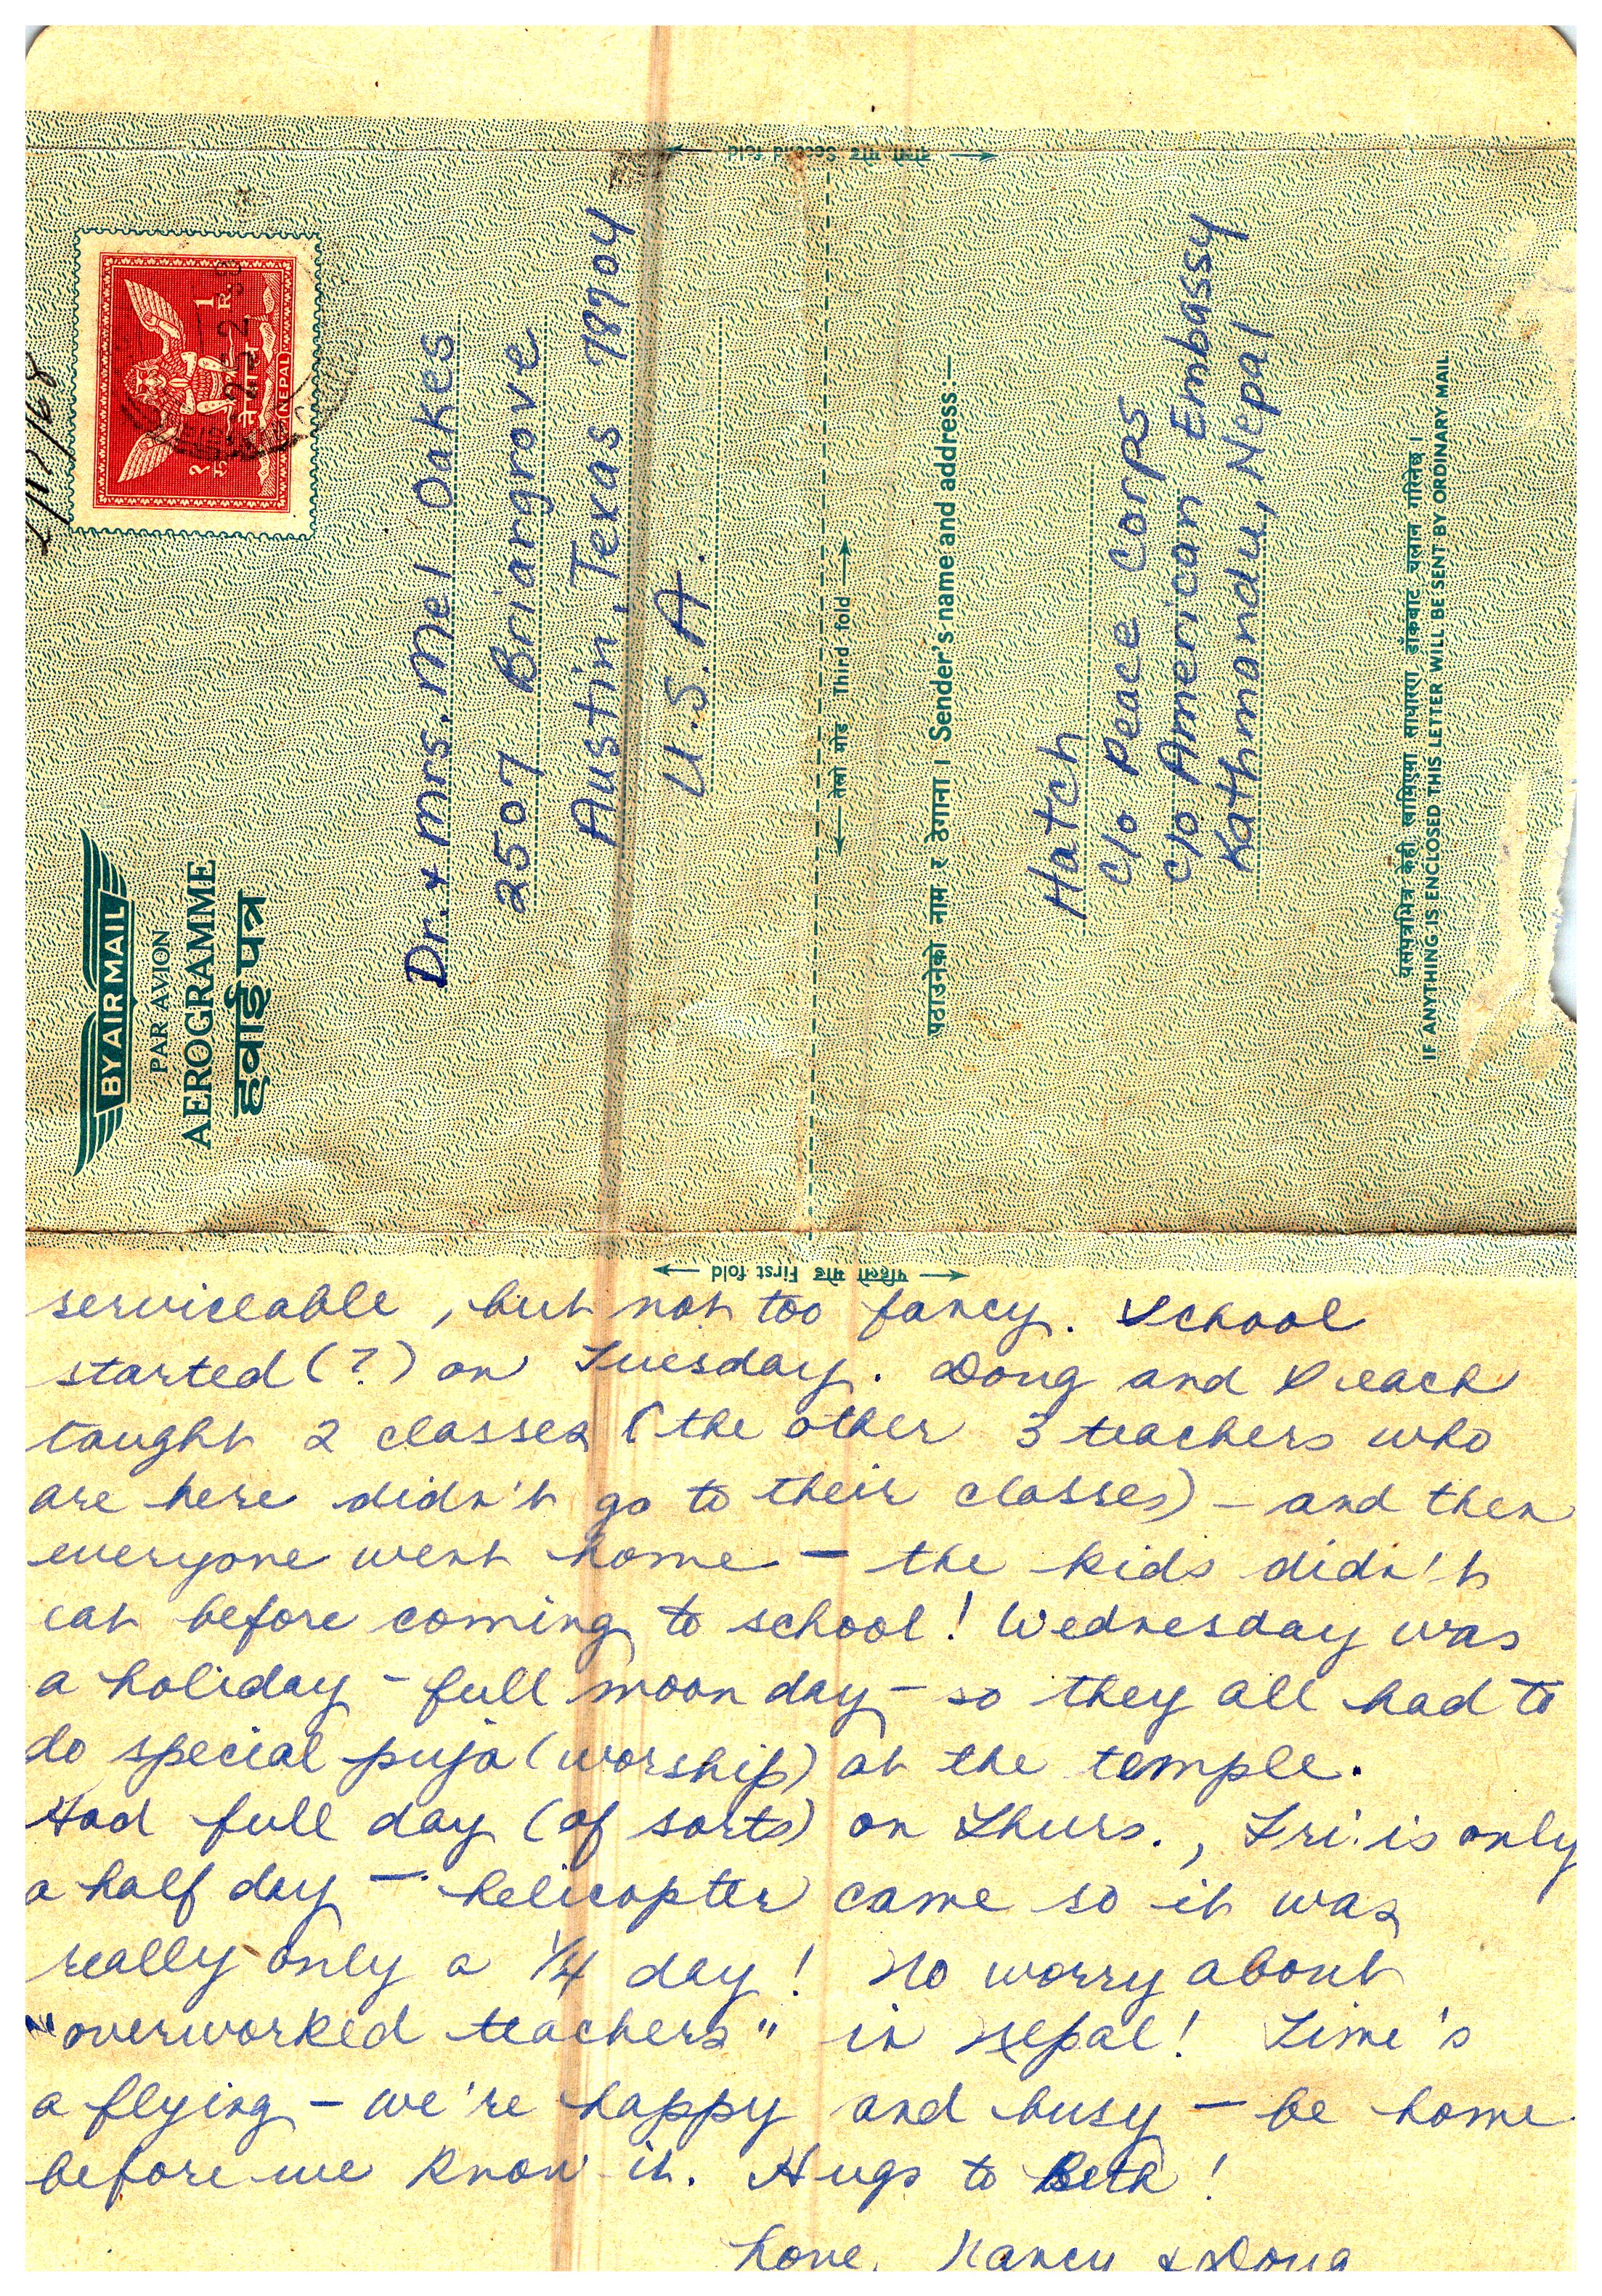 दोस्रो मोड Second fold
2/17/68
१ रु. नेपाल 1 R.
NEPAL
BY AIR MAIL
PAR AVION
AEROGRAMME
हवाईपत्र
Dr. + Mrs. Mel Oakes
2507 Briargrove
Austin, Texas 78704
U.S.A.
तेस्रो मोड Third fold
पठाउनेको नाम र ठेगाना । Sender's name and address:—
Hatch
c/o Peace Corps
c/o American Embassy
Kathmandu, Nepal
यसपत्रभित्र केही खामिएमा साधारण डाँकबाट चलान गरिनेछ ।
IF ANYTHING IS ENCLOSED THIS LETTER WILL BE SENT BY ORDINARY MAIL
पहिलो मोड First fold
serviceable, but not too fancy. School
started (?) on Tuesday. Doug and I each
taught 2 classes (the other 3 teachers who
are here didn't go to their classes) – and then
everyone went home – the kids didn't
eat before coming to school! Wednesday was
a holiday – full moon day – so they all had to
do special puja (worship) at the temple.
Had full day (of sorts) on Thurs., Fri. is only
a half day – helicopter came so it was
really only a 1/4 day! No worry about
"overworked teachers" in Nepal! Time's
a flying – we're happy and busy – be home
before we know it. Hugs to Beth!
Love, Nancy & Doug